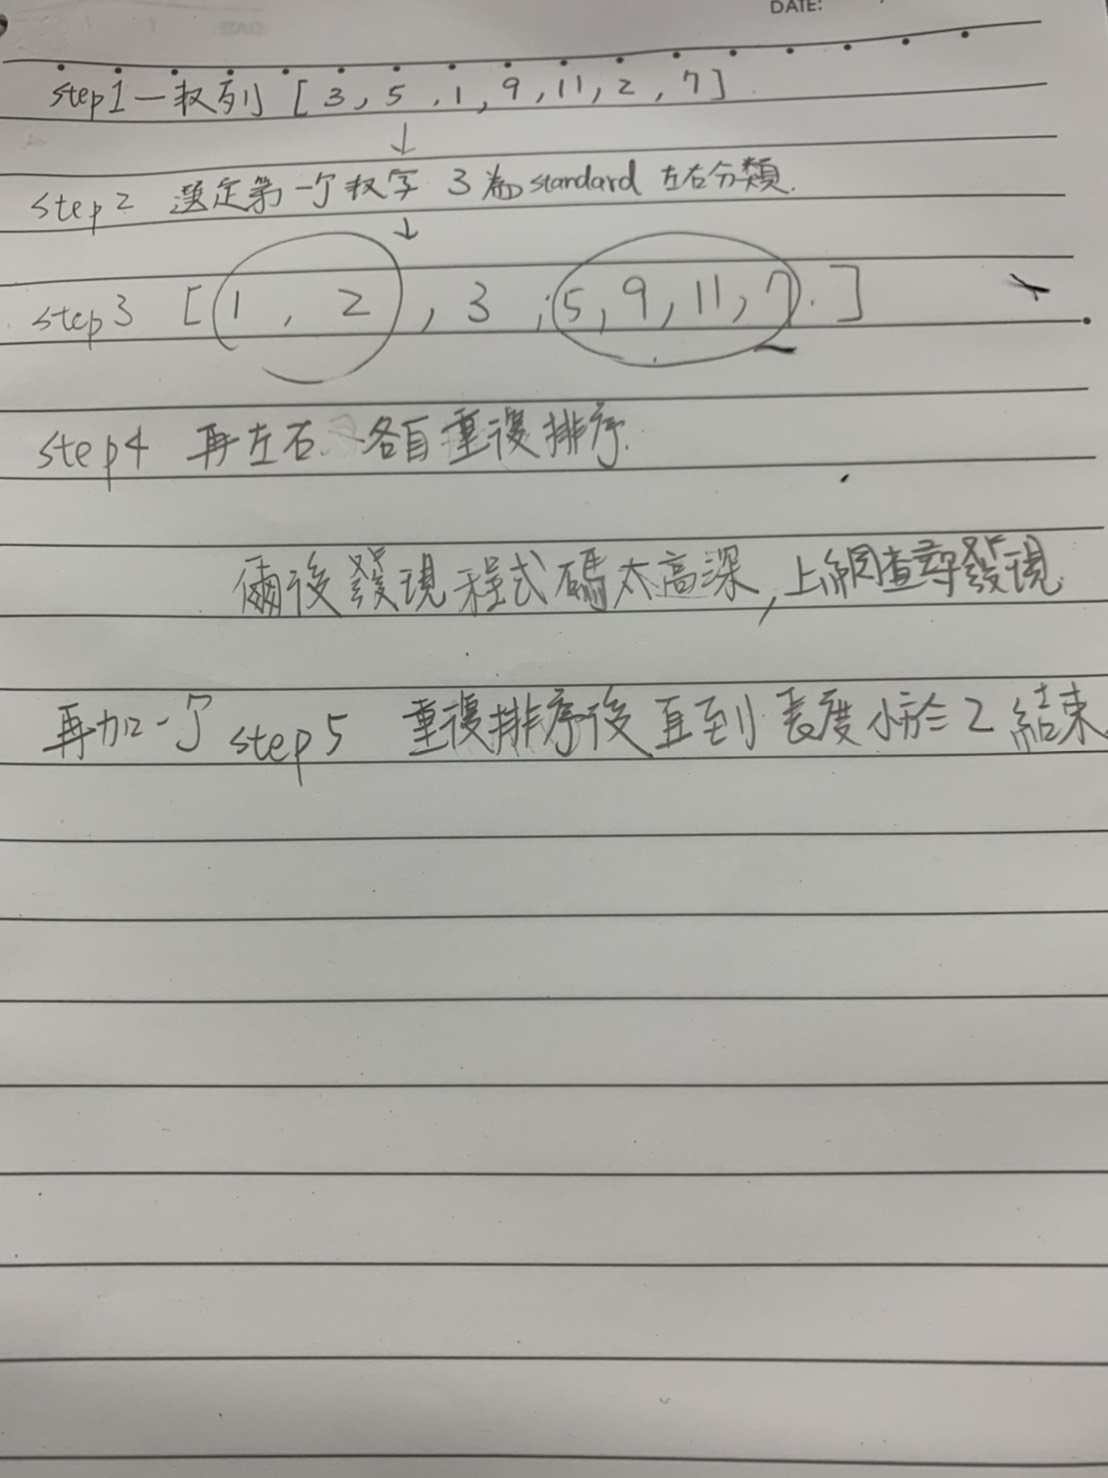 DATE:
step1 一数列 [ 3, 5, 1, 9, 11, 2, 7 ]
↓
step2 選定第一个数字 3 為 standard 左右分類.
↓
step3 [ 1 , 2 , 3 , 5, 9, 11, 7. ]
step4 再左右. 各自重複排序.
爾後發現程式碼太高深, 上網查尋發現
再加一个 step5 重複排序後直到長度小於2結束